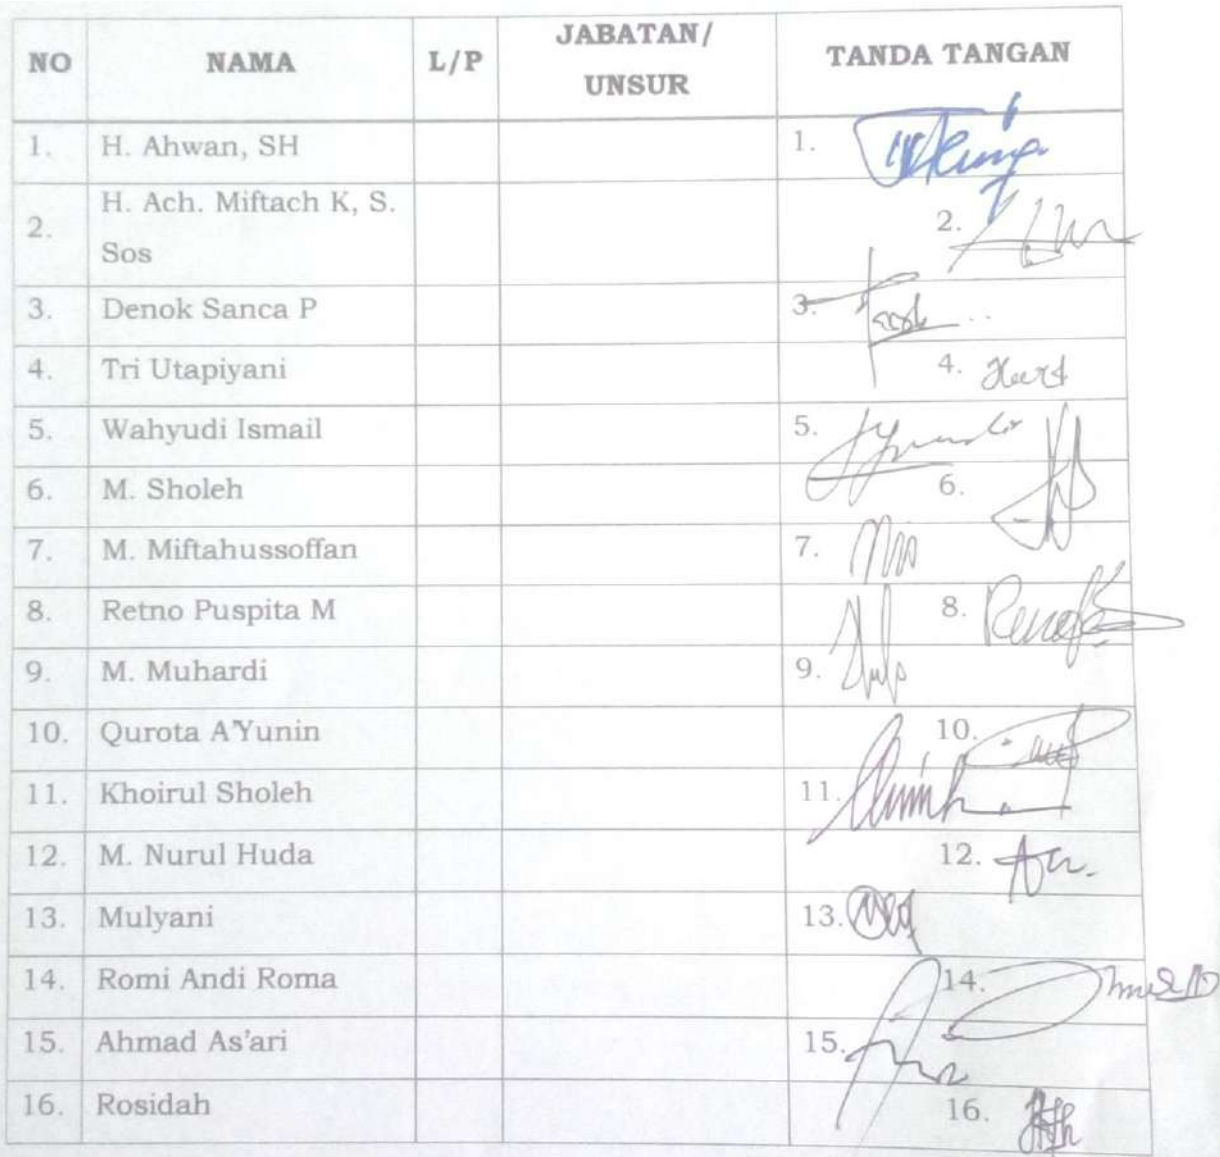 NO NAMA L/P JABATAN/ UNSUR TANDA TANGAN
1. H. Ahwan, SH 1.
2. H. Ach. Miftach K, S. Sos 2.
3. Denok Sanca P 3.
4. Tri Utapiyani 4.
5. Wahyudi Ismail 5.
6. M. Sholeh 6.
7. M. Miftahussoffan 7.
8. Retno Puspita M 8.
9. M. Muhardi 9.
10. Qurota A'Yunin 10.
11. Khoirul Sholeh 11.
12. M. Nurul Huda 12.
13. Mulyani 13.
14. Romi Andi Roma 14.
15. Ahmad As'ari 15.
16. Rosidah 16.